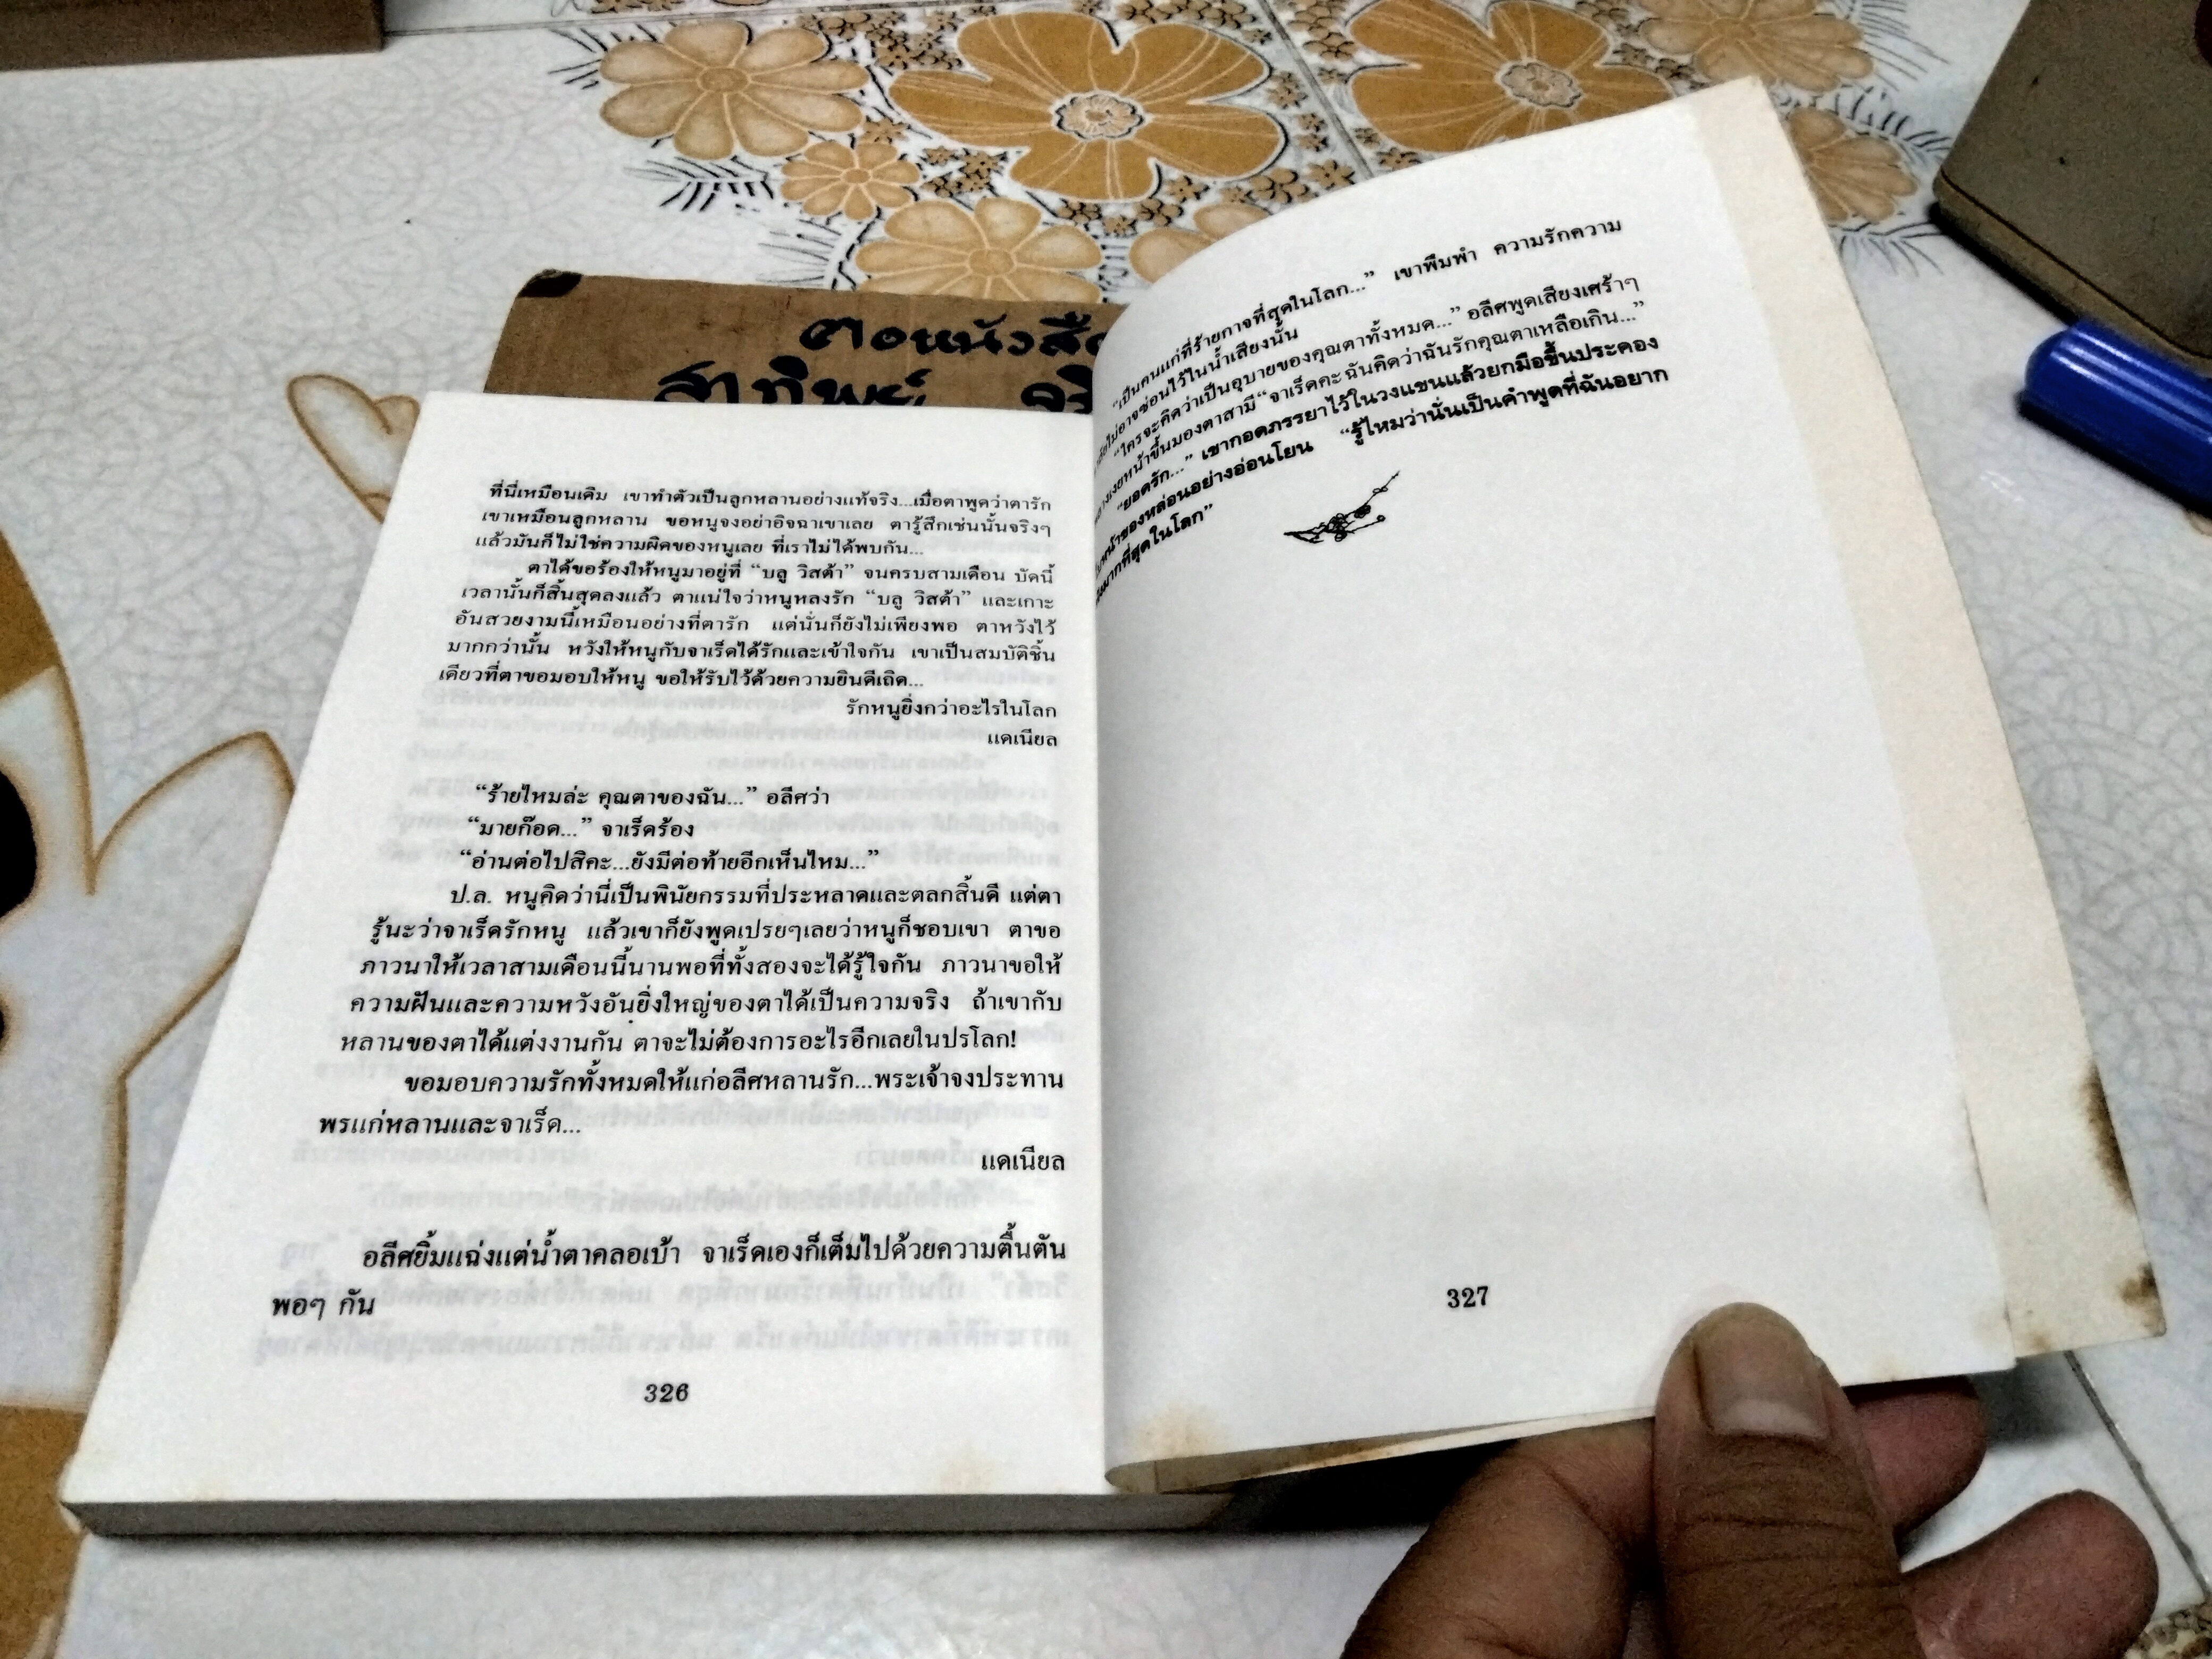 คอหนังสือ
สาทิพย์
ที่นี่เหมือนเดิม เขาทำตัวเป็นลูกหลานอย่างแท้จริง...เมื่อตาพูดว่าตารัก
เขาเหมือนลูกหลาน ขอหนูจงอย่าอิจฉาเขาเลย ตารู้สึกเช่นนั้นจริงๆ
แล้วมันก็ไม่ใช่ความผิดของหนูเลย ที่เราไม่ได้พบกัน...
ตาได้ขอร้องให้หนูมาอยู่ที่ “บลู วิสต้า” จนครบสามเดือน บัดนี้
เวลานั้นก็สิ้นสุดลงแล้ว ตาแน่ใจว่าหนูหลงรัก “บลู วิสต้า” และเกาะ
อันสวยงามนี้เหมือนอย่างที่ตารัก แต่นั่นก็ยังไม่เพียงพอ ตาหวังไว้
มากกว่านั้น หวังให้หนูกับจาเร็ดได้รักและเข้าใจกัน เขาเป็นสมบัติชิ้น
เดียวที่ตาขอมอบให้หนู ขอให้รับไว้ด้วยความยินดีเถิด...
รักหนูยิ่งกว่าอะไรในโลก
แดเนียล
“ร้ายไหมล่ะ คุณตาของฉัน...” อลีศว่า
“มายก๊อด...” จาเร็ดร้อง
“อ่านต่อไปสิคะ...ยังมีต่อท้ายอีกเห็นไหม...”
ป.ล. หนูคิดว่านี่เป็นพินัยกรรมที่ประหลาดและตลกสิ้นดี แต่ตา
รู้นะว่าจาเร็ดรักหนู แล้วเขาก็ยังพูดเปรยๆเลยว่าหนูก็ชอบเขา ตาขอ
ภาวนาให้เวลาสามเดือนนี้นานพอที่ทั้งสองจะได้รู้ใจกัน ภาวนาขอให้
ความฝันและความหวังอันยิ่งใหญ่ของตาได้เป็นความจริง ถ้าเขากับ
หลานของตาได้แต่งงานกัน ตาจะไม่ต้องการอะไรอีกเลยในปรโลก!
ขอมอบความรักทั้งหมดให้แก่อลีศหลานรัก...พระเจ้าจงประทาน
พรแก่หลานและจาเร็ด...
แดเนียล
อลีศยิ้มแฉ่งแต่น้ำตาคลอเบ้า จาเร็ดเองก็เต็มไปด้วยความตื้นตัน
พอๆ กัน
326
“เป็นคนแก่ที่ร้ายกาจที่สุดในโลก...” เขาพึมพำ ความรักความ
ไม่อาจซ่อนไว้ในน้ำเสียงนั้น
“ใครจะคิดว่าเป็นอุบายของคุณตาทั้งหมด...” อลีศพูดเสียงเศร้าๆ
เงยหน้าขึ้นมองตาสามี “จาเร็ดคะ ฉันคิดว่าฉันรักคุณตาเหลือเกิน...”
“ยอดรัก...” เขากอดภรรยาไว้ในวงแขนแล้วยกมือขึ้นประคอง
ของหล่อนอย่างอ่อนโยน “รู้ไหมว่านั่นเป็นคำพูดที่ฉันอยาก
มากที่สุดในโลก”
327